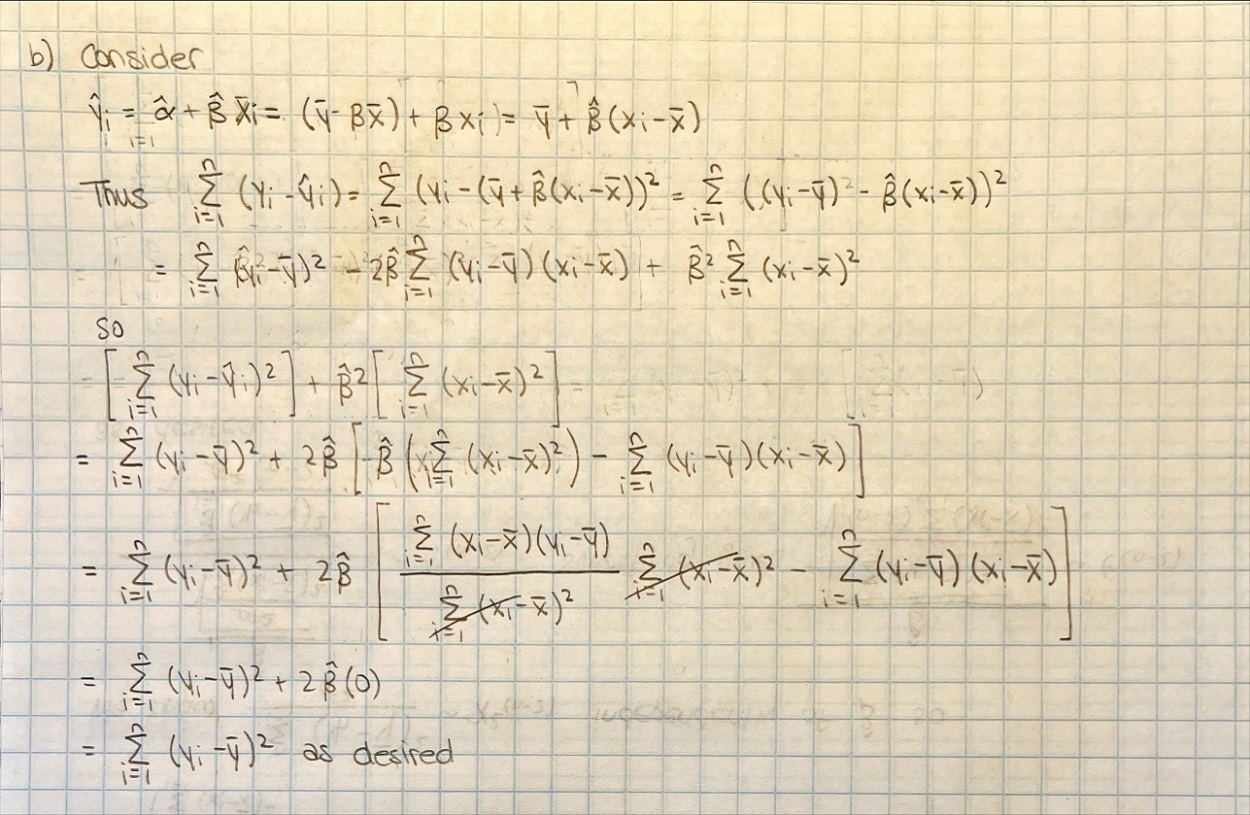 b) Consider
ŷᵢ = α̂ + β̂ x̄ᵢ = (ȳ - βx̄) + βxᵢ) = ȳ + β̂(xᵢ - x̄)
i=1
Thus ∑ᵢ₌₁ⁿ (yᵢ - ŷᵢ) = ∑ᵢ₌₁ⁿ (yᵢ - (ȳ + β̂(xᵢ - x̄))² = ∑ᵢ₌₁ⁿ ((yᵢ - ȳ)² - β̂(xᵢ - x̄))²
= ∑ᵢ₌₁ⁿ (yᵢ - ȳ)² - 2β̂ ∑ᵢ₌₁ⁿ (yᵢ - ȳ)(xᵢ - x̄) + β̂² ∑ᵢ₌₁ⁿ (xᵢ - x̄)²
so
[∑ᵢ₌₁ⁿ (yᵢ - ŷᵢ)²] + β̂² [∑ᵢ₌₁ⁿ (xᵢ - x̄)²]
= ∑ᵢ₌₁ⁿ (yᵢ - ȳ)² + 2β̂ [β̂ (∑ᵢ₌₁ⁿ (xᵢ - x̄)²) - ∑ᵢ₌₁ⁿ (yᵢ - ȳ)(xᵢ - x̄)]
= ∑ᵢ₌₁ⁿ (yᵢ - ȳ)² + 2β̂ [ (∑ᵢ₌₁ⁿ (xᵢ - x̄)(yᵢ - ȳ)) / (∑ᵢ₌₁ⁿ (xᵢ - x̄)²) ∑ᵢ₌₁ⁿ (xᵢ - x̄)² - ∑ᵢ₌₁ⁿ (yᵢ - ȳ)(xᵢ - x̄) ]
= ∑ᵢ₌₁ⁿ (yᵢ - ȳ)² + 2β̂(0)
= ∑ᵢ₌₁ⁿ (yᵢ - ȳ)² as desired